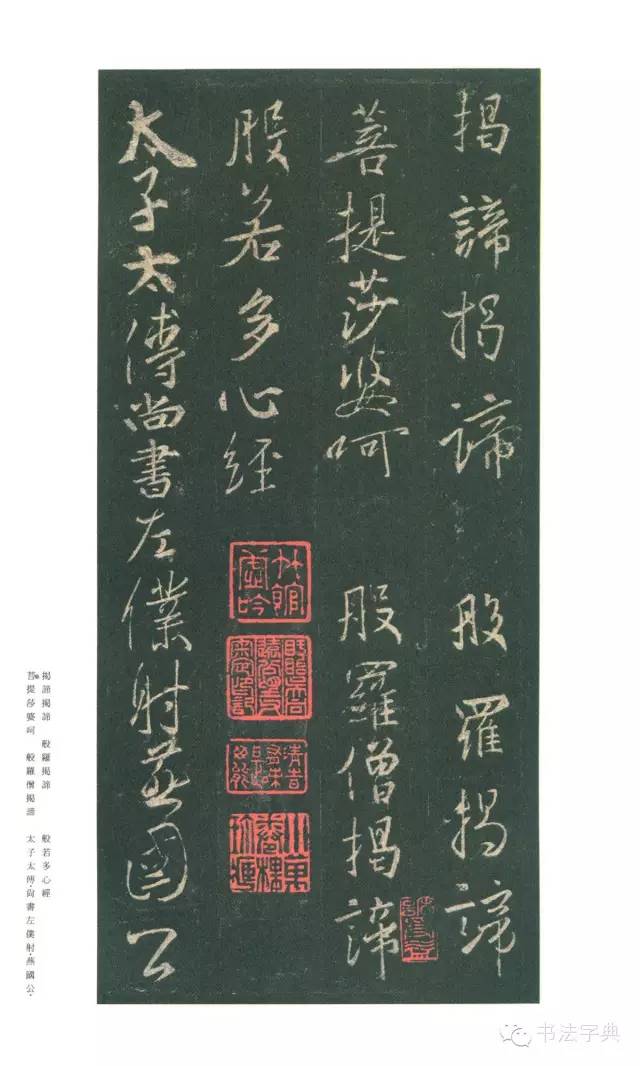 揭諦揭諦 般羅揭諦
菩提莎婆呵 般羅僧揭諦
般若多心經
太子太傅尚書左僕射燕國公
揭諦揭諦 般羅揭諦 般若多心經
菩提莎婆呵 般羅僧揭諦 太子太傅·尚書左僕射·燕國公·
书法字典